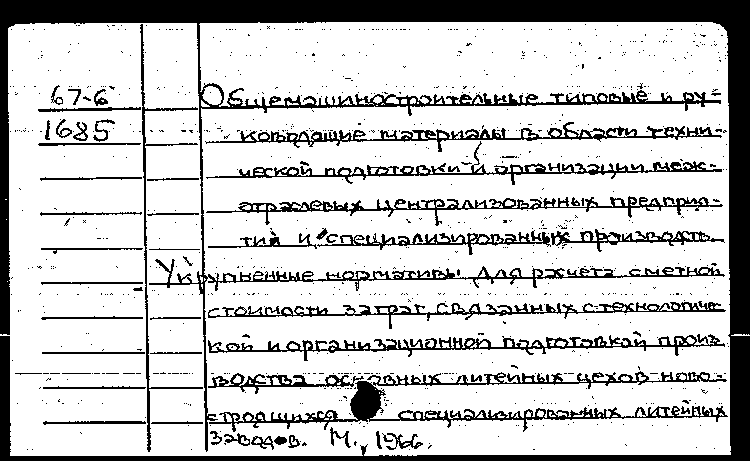 67-6
1685
Общемашиностроительные типовые и ру-
ководящие материалы в области техни-
ческой подготовки и организации меж-
отраслевых централизованных предприя-
тий и специализированных производств.
Укрупненные нормативы для расчета сметной
стоимости затрат, связанных с технологичес-
кой и организационной подготовкой произ-
водства основных литейных цехов ново-
строящихся специализированных литейных
заводов. М., 1966.